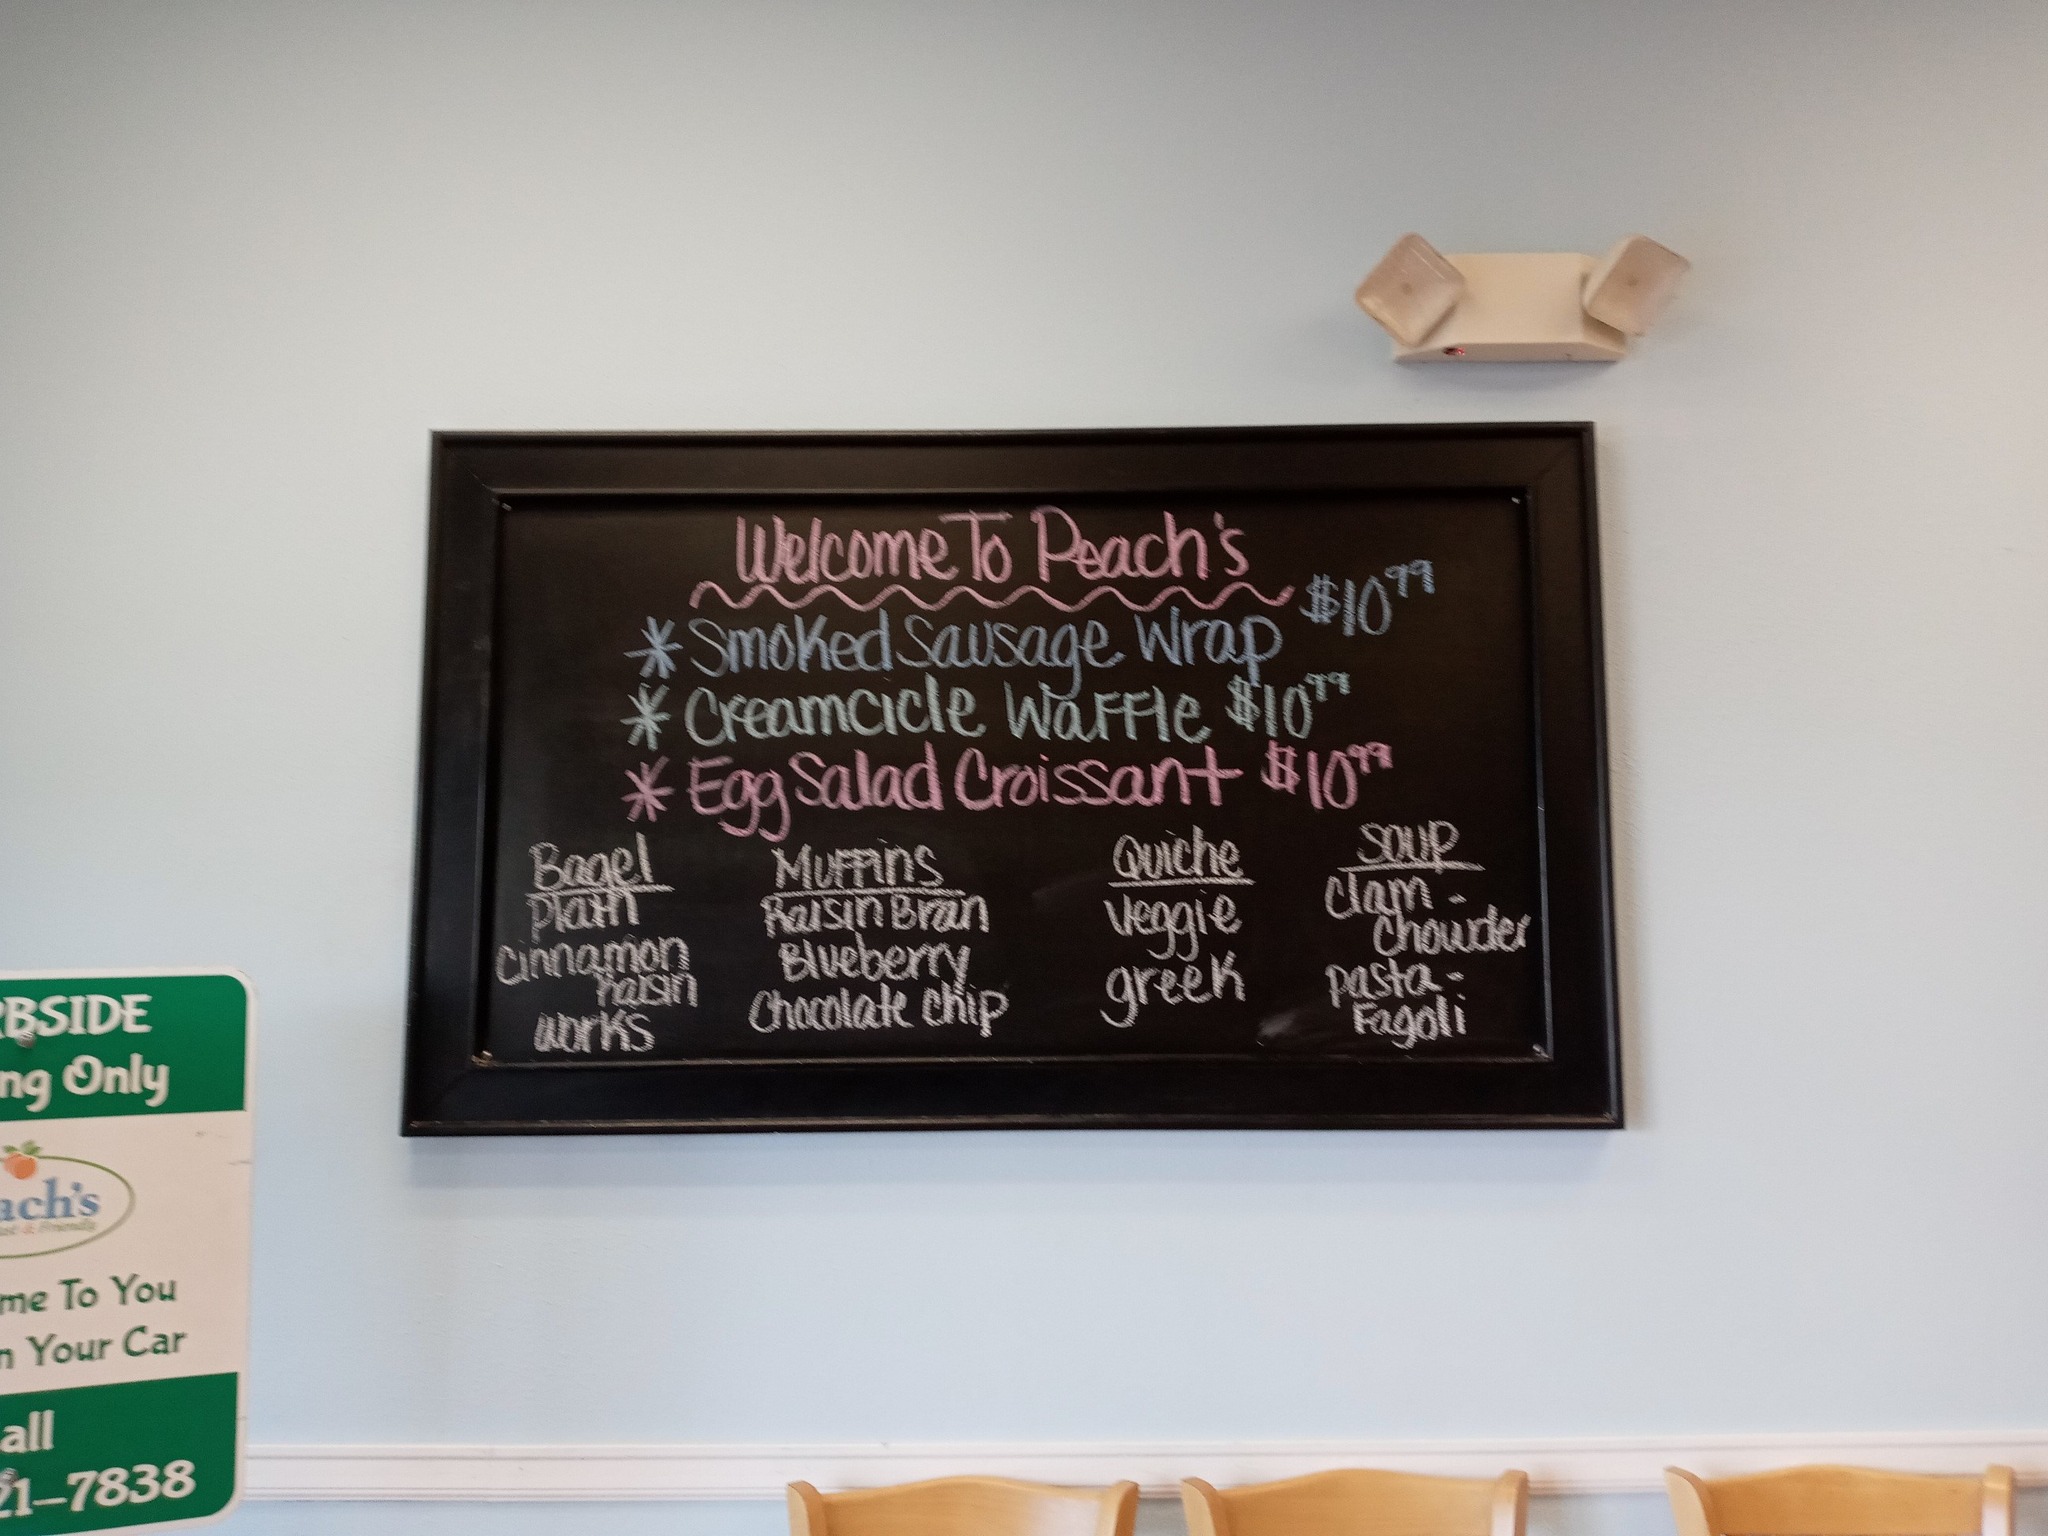 Welcome To Peach's
* Smoked Sausage Wrap $10.99
* Creamcicle Waffle $10.99
* Egg Salad Croissant $10.99
Bagel
Plain
Cinnamon
Raisin
Works
Muffins
Raisin Bran
Blueberry
Chocolate Chip
Quiche
Veggie
greek
Soup
Clam -
Chowder
Pasta -
Fagoli
RBSIDE
ng Only
ach's
me To You
n Your Car
all
21-7838